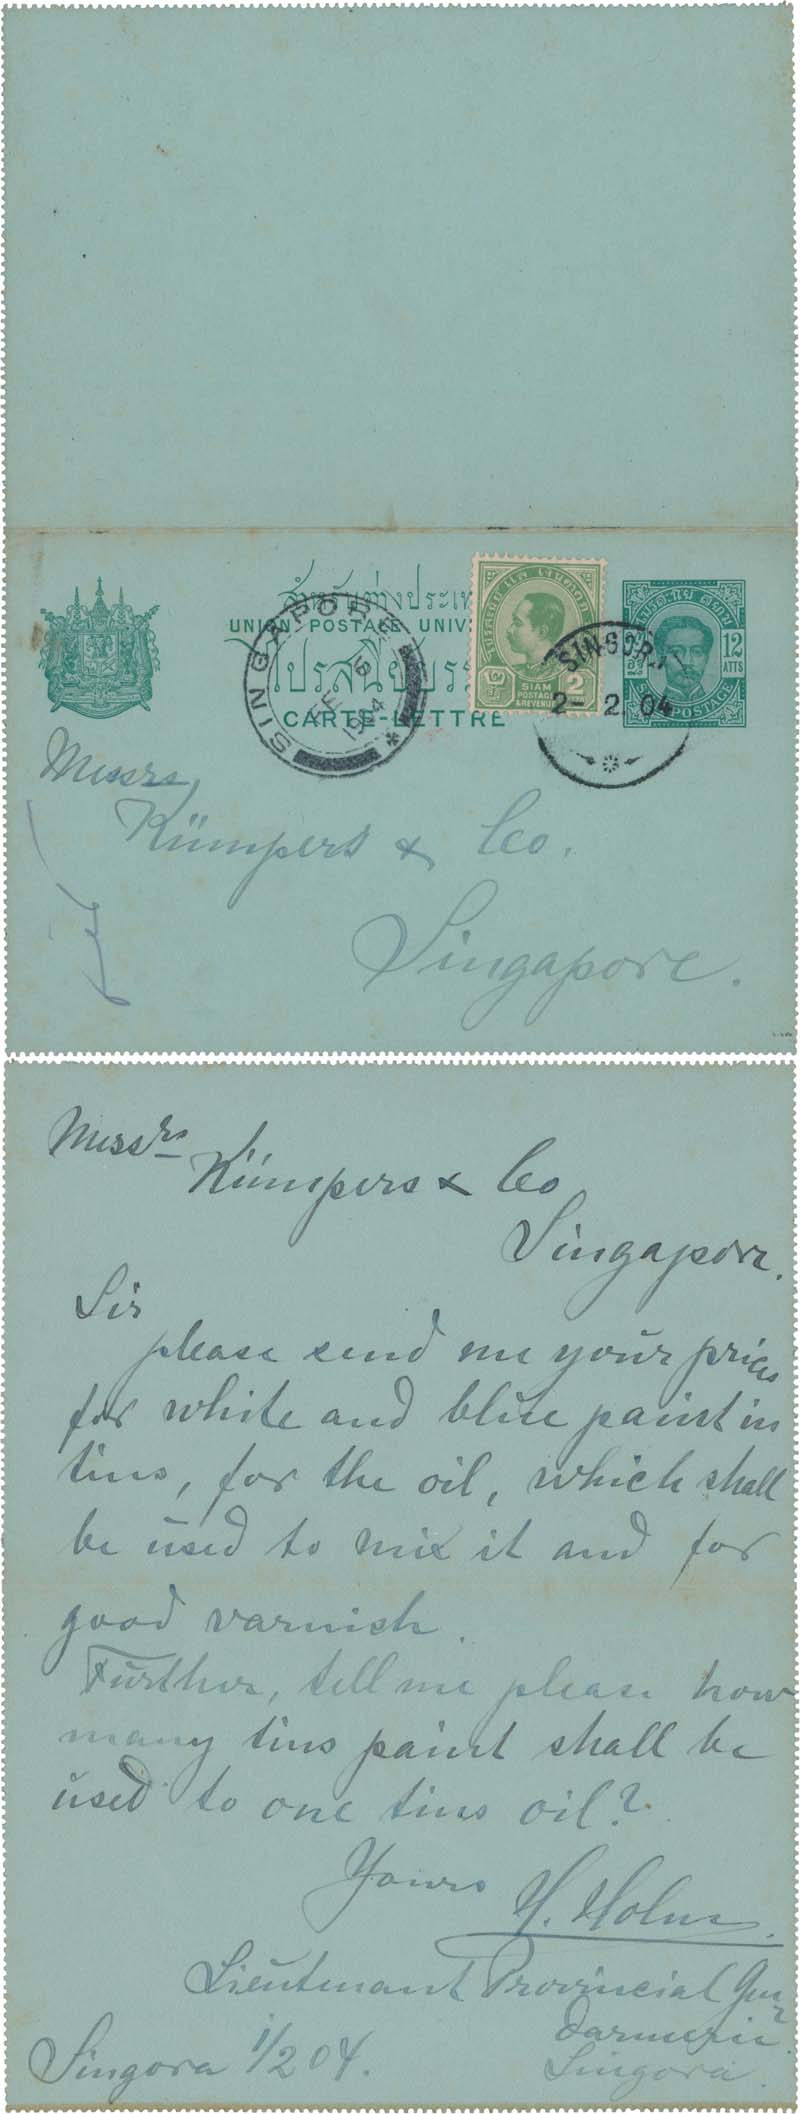 สำหรับต่างประเท
UNION POSTALE UNIV
ไปรสนียบรร
CARTE-LETTRE
SIAM
POSTAGE
& REVENUE
2
12
ATTS
SIAM POSTAGE
SINGAPORE
FE 6
1904
SINGORA
2- 2. 04
Messrs
Kümpers & Co.
Singapore.
Messrs
Kümpers & Co
Singapore.
Sir
please send me your prices
for white and blue paint in
tins, for the oil, which shall
be used to mix it and for
good varnish.
Further, tell me please how
many tins paint shall be
used to one tins oil?
Yours H. Holm.
Lieutenant Provincial Gen
darmerie
Singora 1/2 04. Singora.